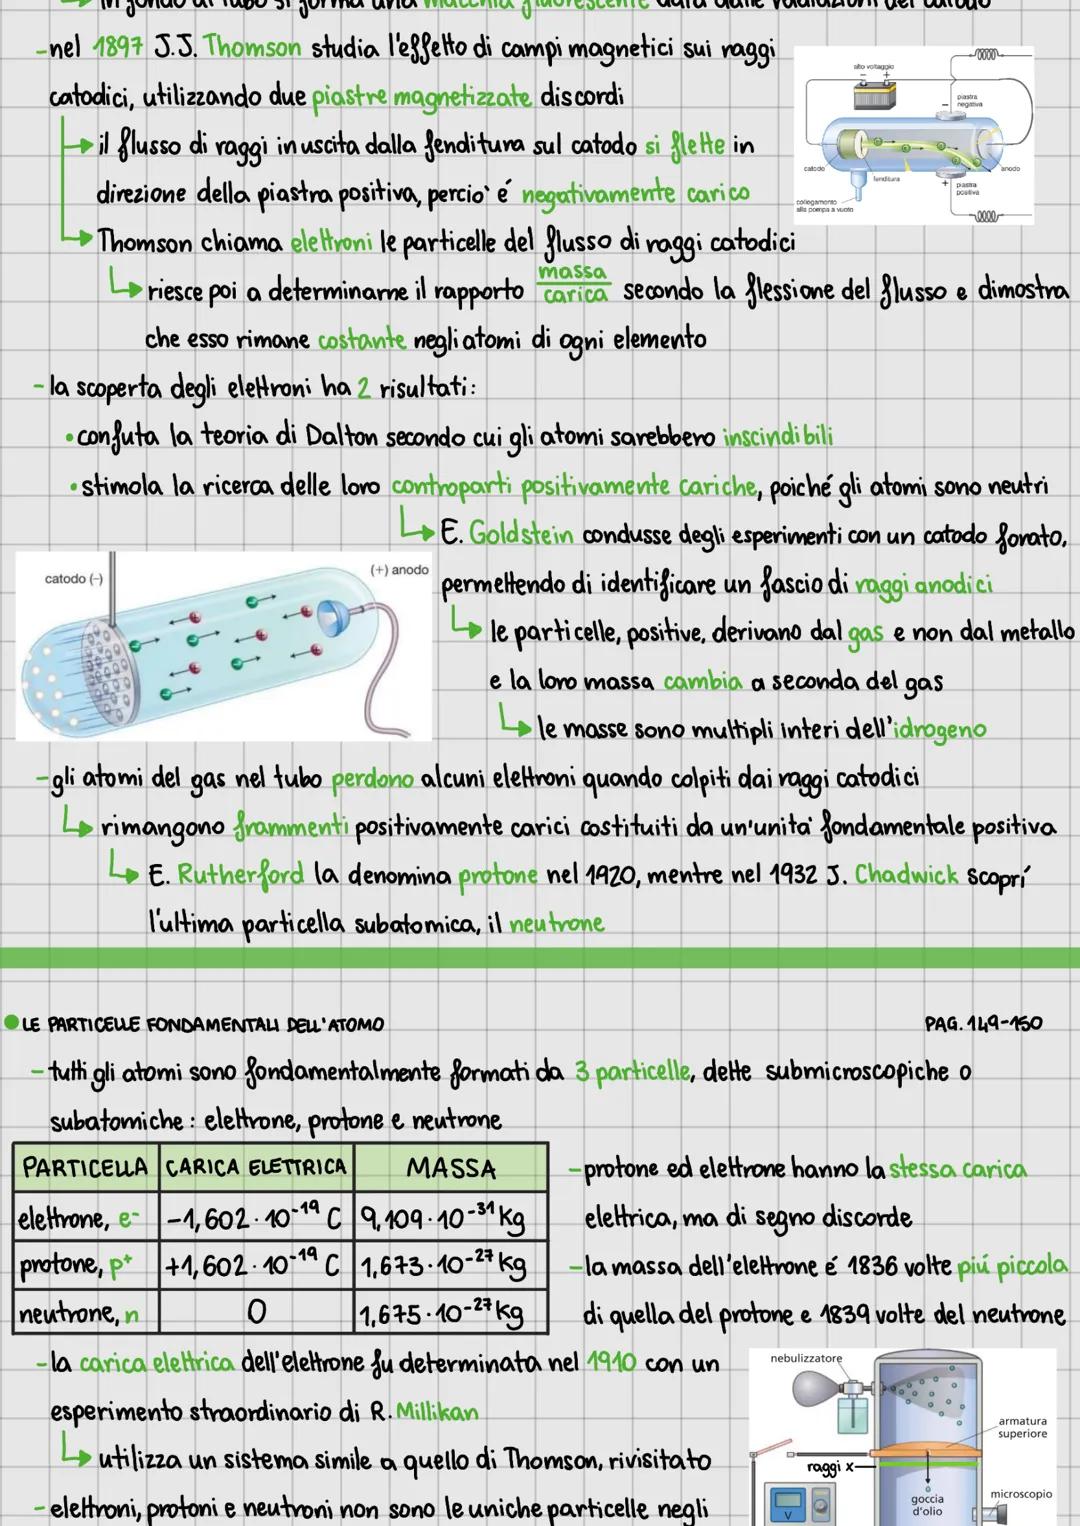 in fondo al tubo si forma una macchia fluorescente data dalle radiazioni del catodo
-nel 1897 J.J. Thomson studia l'effetto di campi magnetici sui raggi
catodici, utilizzando due piastre magnetizzate discordi
il flusso di raggi in uscita dalla fenditura sul catodo si flette in
direzione della piastra positiva, percio' é negativamente carico
Thomson chiama elettroni le particelle del flusso di raggi catodici
riesce poi a determinarne il rapporto massa/carica secondo la flessione del flusso e dimostra
che esso rimane costante negli atomi di ogni elemento
alto voltaggio
- +
piastra
negativa
-
catodo
fenditura
anodo
+
piastra
positiva
collegamento
alla pompa a vuoto
-la scoperta degli elettroni ha 2 risultati:
•confuta la teoria di Dalton secondo cui gli atomi sarebbero inscindibili
•stimola la ricerca delle loro controparti positivamente cariche, poiché gli atomi sono neutri
E. Goldstein condusse degli esperimenti con un catodo forato,
permettendo di identificare un fascio di raggi anodici
le particelle, positive, derivano dal gas e non dal metallo
e la loro massa cambia a seconda del gas
le masse sono multipli interi dell'idrogeno
catodo (-)
(+) anodo
-gli atomi del gas nel tubo perdono alcuni elettroni quando colpiti dai raggi catodici
rimangono frammenti positivamente carici costituiti da un'unita' fondamentale positiva
E. Rutherford la denomina protone nel 1920, mentre nel 1932 J. Chadwick scoprí
l'ultima particella subatomica, il neutrone
LE PARTICELLE FONDAMENTALI DELL'ATOMO PAG. 149-150
-tutti gli atomi sono fondamentalmente formati da 3 particelle, dette submicroscopiche o
subatomiche: elettrone, protone e neutrone
PARTICELLA CARICA ELETTRICA MASSA
elettrone, e⁻ -1,602·10⁻¹⁹ C 9,109·10⁻³¹ Kg
protone, p⁺ +1,602·10⁻¹⁹ C 1,673·10⁻²⁷ Kg
neutrone, n 0 1,675·10⁻²⁷ Kg
-protone ed elettrone hanno la stessa carica
elettrica, ma di segno discorde
-la massa dell'elettrone é 1836 volte piú piccola
di quella del protone e 1839 volte del neutrone
-la carica elettrica dell'elettrone fu determinata nel 1910 con un
esperimento straordinario di R. Millikan
utilizza un sistema simile a quello di Thomson, rivisitato
-elettroni, protoni e neutroni non sono le uniche particelle negli
nebulizzatore
armatura
superiore
raggi x
goccia
d'olio
microscopio
V